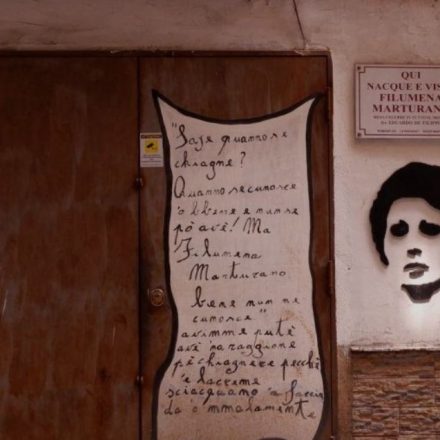 "Saje quanno se
chiagne?
Quanno se cunosce
'o bbene e nun se
pò avé! Ma
Filumena
Marturano
bene nun ne
cunosce"
avimme putè
avè na raggione
pe chiagnere pecchè
'e lacreme
sciacquano 'a faccia
da o mmalamente
QUI
NACQUE E VIS
FILUMENA
MARTURAN